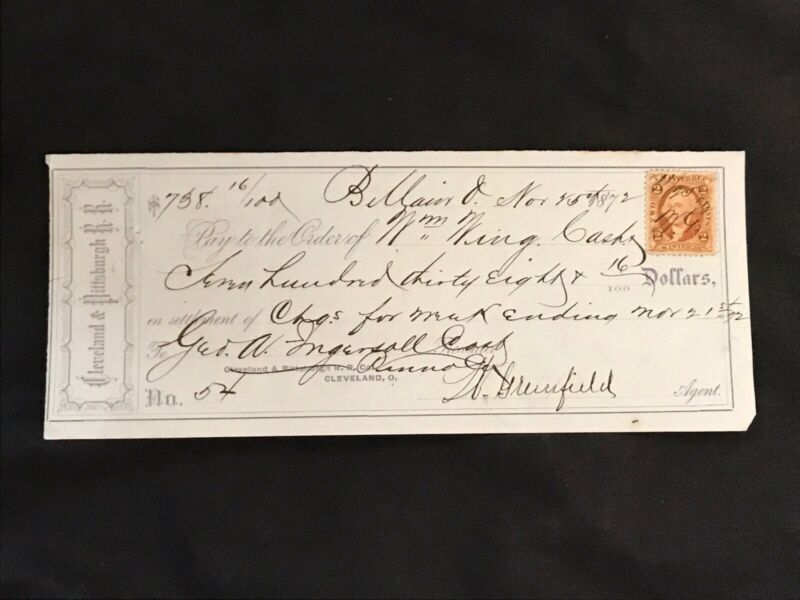 Cleveland & Pittsburgh R. R.
$738. 16/100 Bellair O. Nov 25th 1872
Pay to the Order of Wm Wing. Cash
Seven hundred thirty eight & 16/100 Dollars,
in settlement of Chgs for week ending Nov 21st 72
To Geo. A. Ingersoll Cash
Cleveland & Pittsburgh R. R. Co.
CLEVELAND, O.
No. 54 Greenfield Agent.
2 2